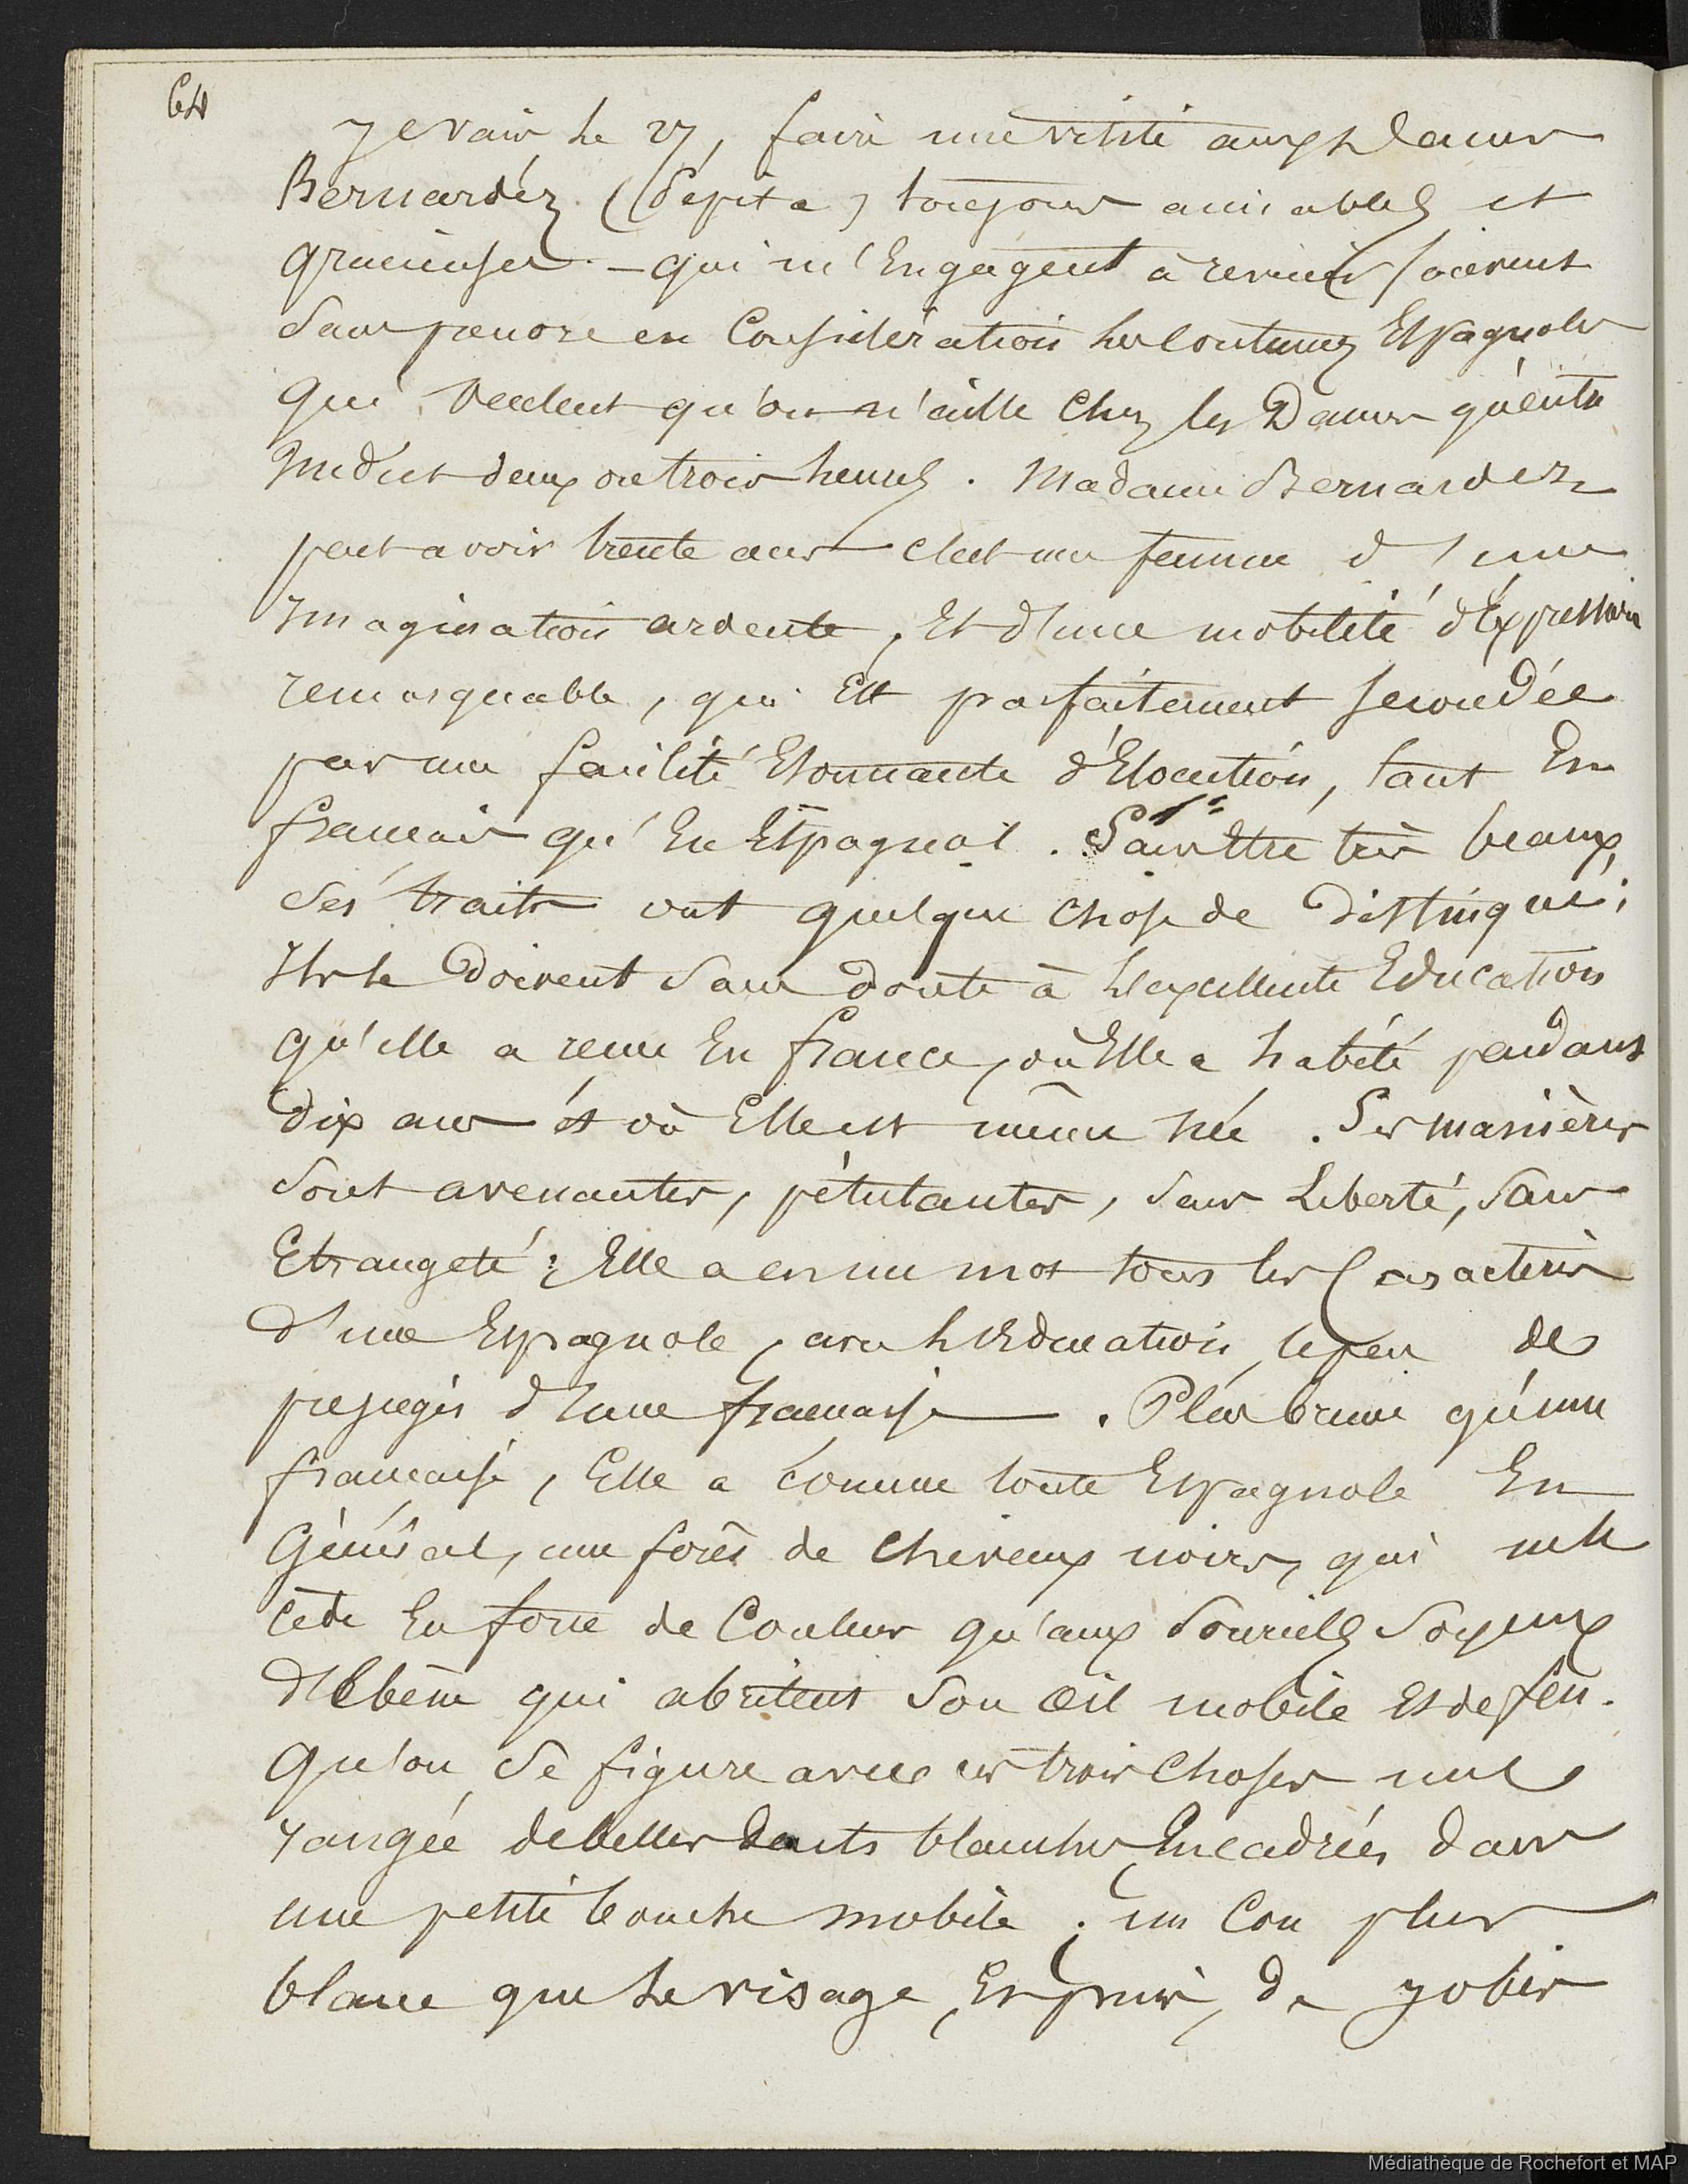 64
Je vais le 27, faire une visite aux Dames
Bernardéz (Pépita) toujours aimables et
gracieuses — qui m'Engagent à revenir souvent
sans prendre en Considération les Coutumes Espagnoles
qui veulent qu'on n'aille chez les Dames qu'entre
midi et deux ou trois heures. Madame Bernardez
peut avoir trente ans c'est une femme d'une
Imagination ardente, Et d'une mobilité d'Expression
remarquable, qui Est parfaitement secondée
par une facilité Etonnante d'Elocution, tant En
français qu'En Espagnol. Sans Etre très beaux,
ses traits ont quelque chose de distingué;
Ils le doivent sans doute à l'excellente Education
qu'elle a reçue En france, où Elle a habité pendant
dix ans et où Elle est même née. Ses manières
sont avenantes, pétulantes, sans Liberté, sans
Etrangeté; Elle a en un mot tous les Caractères
d'une Espagnole, avec l'Education, le peu de
préjugés d'une française. Plus brune qu'une
française, Elle a comme toute Espagnole En
Général, une forêt de cheveux noirs, qui ne le
cède En force de Couleur qu'aux sourcils soyeux
d'Ebène qui abritent son œil mobile Et de feu.
Qu'on se figure avec ces trois choses une
rangée de belles dents blanches Encadrées dans
une petite bouche mobile; un Cou plus
blanc que le visage, Et puis, de jolies
Médiathèque de Rochefort et MAP